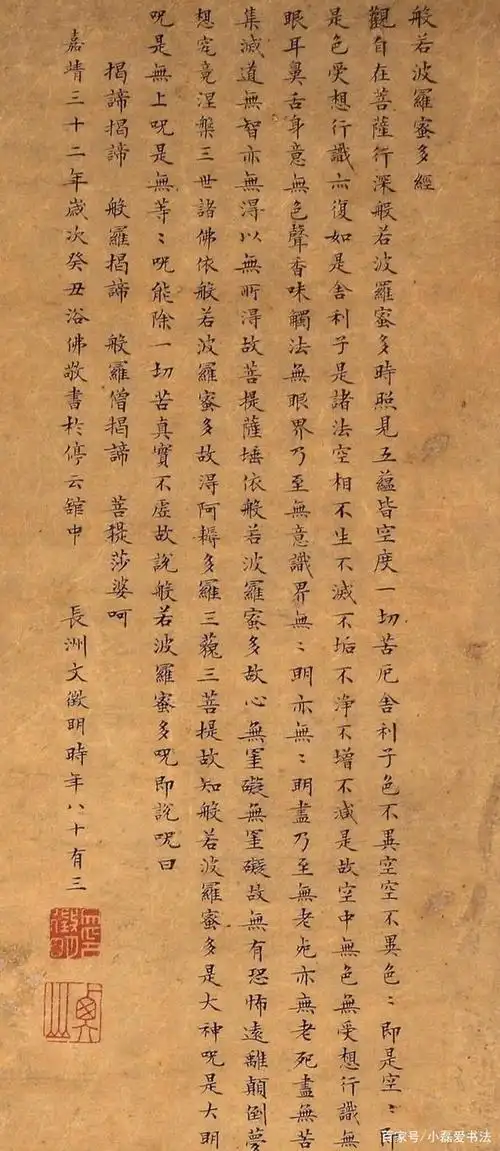 般若波羅蜜多經
觀自在菩薩行深般若波羅蜜多時照見五蘊皆空度一切苦厄舍利子色不異空空不異色〻即是空〻即
是色受想行識亦復如是舍利子是諸法空相不生不滅不垢不淨不增不減是故空中無色無受想行識無
眼耳鼻舌身意無色聲香味觸法無眼界乃至無意識界無〻明亦無〻明盡乃至無老死亦無老死盡無苦
集滅道無智亦無得以無所得故菩提薩埵依般若波羅蜜多故心無罣礙無罣礙故無有恐怖遠離顛倒夢
想究竟涅槃三世諸佛依般若波羅蜜多故得阿耨多羅三藐三菩提故知般若波羅蜜多是大神呪是大明
呪是無上呪是無等〻呪能除一切苦真實不虛故說般若波羅蜜多呪即說呪曰
揭諦揭諦 般羅揭諦 般羅僧揭諦 菩提莎婆呵
嘉靖三十二年歲次癸丑浴佛敬書於停云館中 長洲文徵明時年八十有三
百家号/小磊爱书法